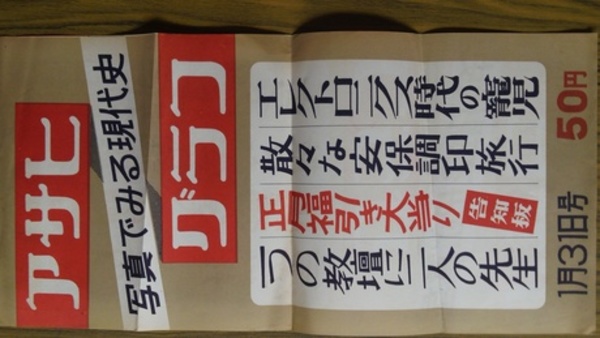 アサヒ
グラフ
写真でみる現代史
エレクトロニクス時代の寵児
散々な安保調印旅行
正月福引き大当り 告知板
一つの教壇に二人の先生
1月31日号
50円